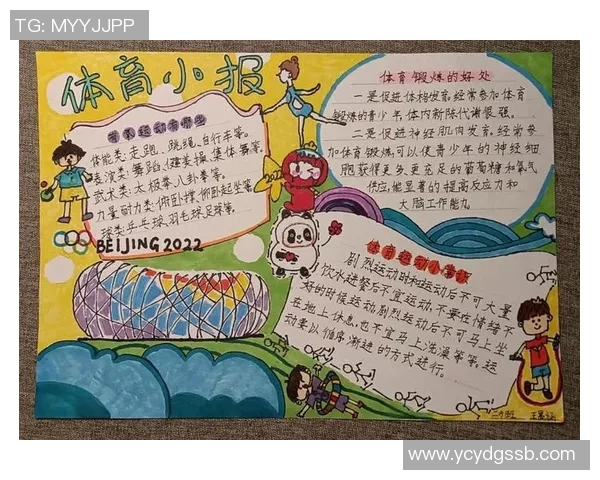 TG: MYYJJPP
体育小报
常见运动有哪些
体能类:走跑、跳绳、自行车等。
表演类:舞蹈、健美操、集体舞等。
武术类:太极拳、八卦拳等。
力量耐力类:俯卧撑、仰卧起坐等
球类:乒乓球、羽毛球、足球等。
BEIJING 2022
体育锻炼的好处
一是促进体格发育。经常参加体育
锻炼的青少年,体内新陈代谢很强。
二是促进神经肌肉发育。经常参
加体育锻炼,可以使青少年的神经细
胞获得更多、更充足的葡萄糖和氧气
供应,能显著的提高反应力和
大脑工作能力。
体育运动小常识
剧烈运动时和运动后不可大量
饮水。进餐后不宜运动,不要在情绪不
好的时候运动。剧烈运动后不可马上坐
在地上休息,也不宜马上洗澡等等。运
动要以循序渐进的方式进行。
www.ycydgssb.com